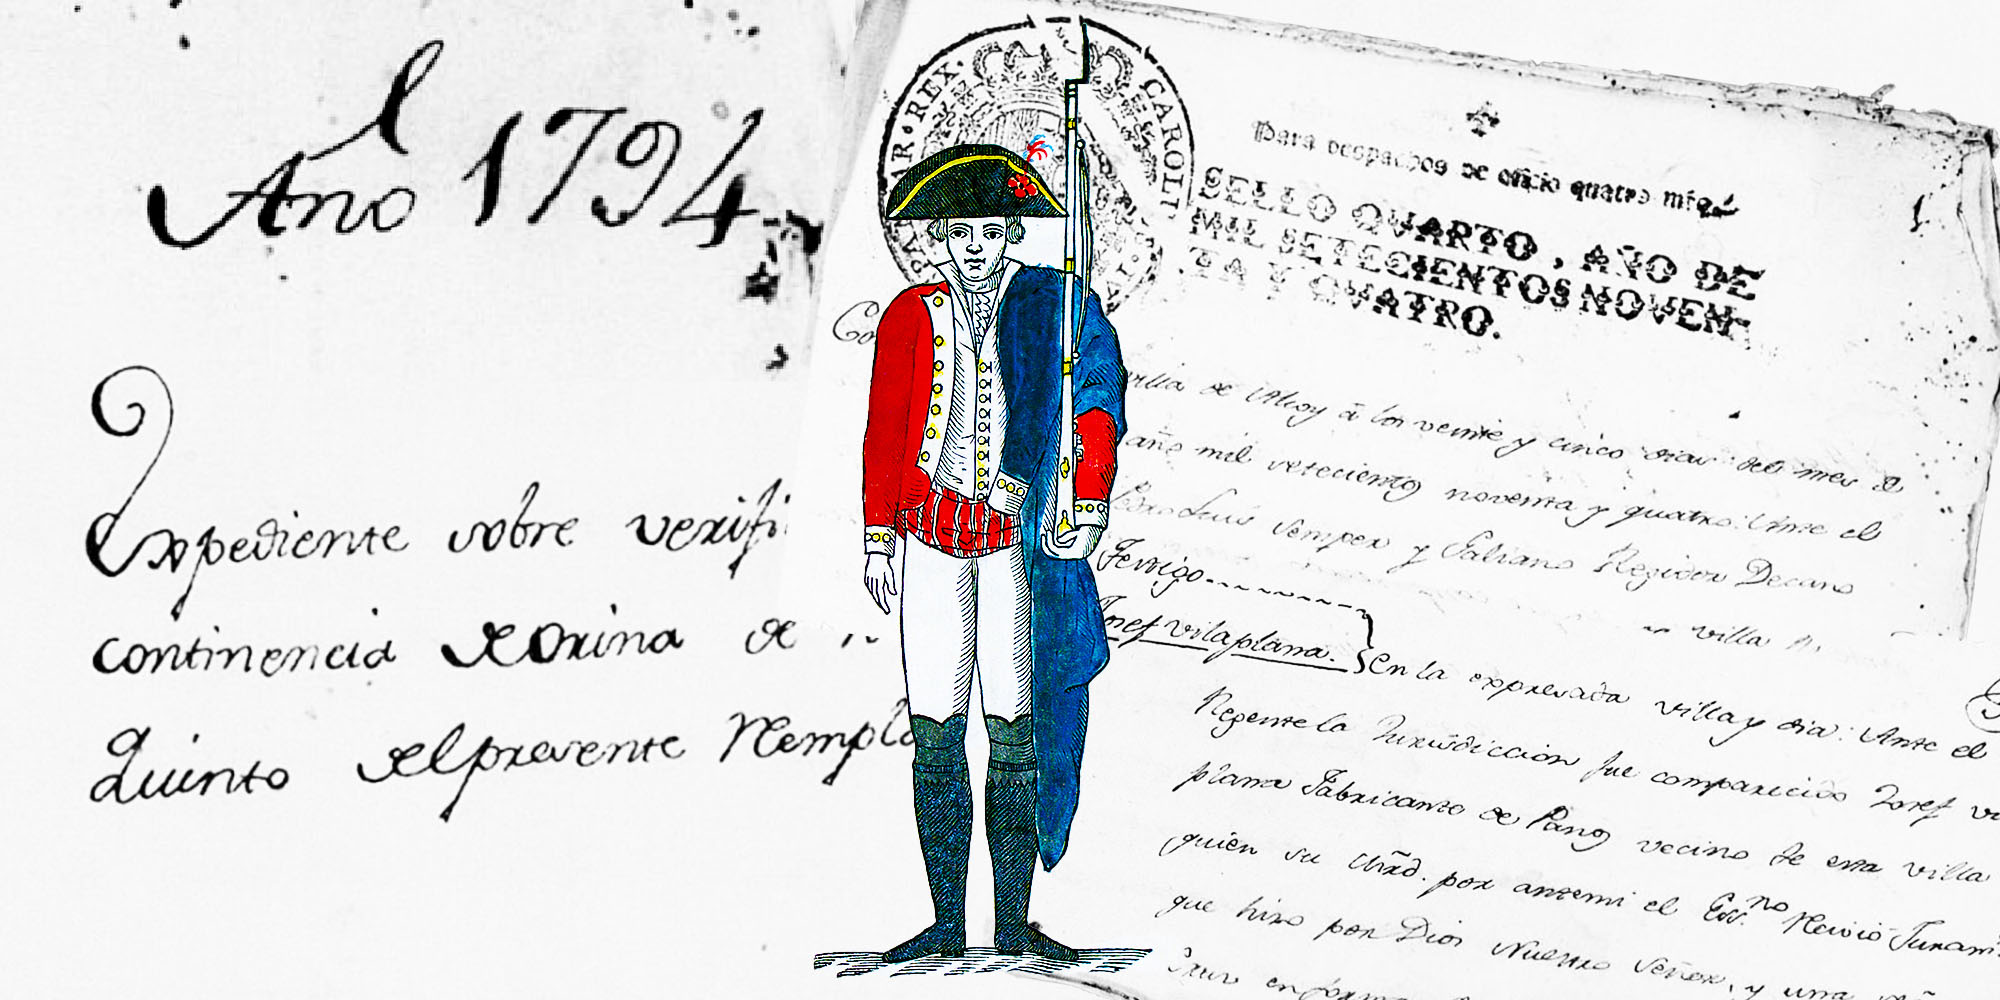 l
Año 1794.
Expediente sobre verifi
continencia de orina de
Quinto del presente Rempla
PAR·REX·
CAROL
1
Para despachos de oficio quatro mrs.
SELLO QVARTO, AÑO DE
MIL SETECIENTOS NOVEN-
TA Y QVATRO.
villa de Alcoy á los veinte y cinco dias del mes de
año mil setecientos noventa y quatro: Ante el
Luis Semper y Galiano Regidor Decano
villa
Testigo
Josef Vilaplana. } En la expresada villa y dia: Ante el
Regente la Jurisdiccion fue comparecido Josef Vi
plana Fabricante de Panos vecino de esta villa
quien su Mrd. por antemi el Essno Recivió Juram
que hizo por Dios Nuestro Señor, y una
Cruz en forma